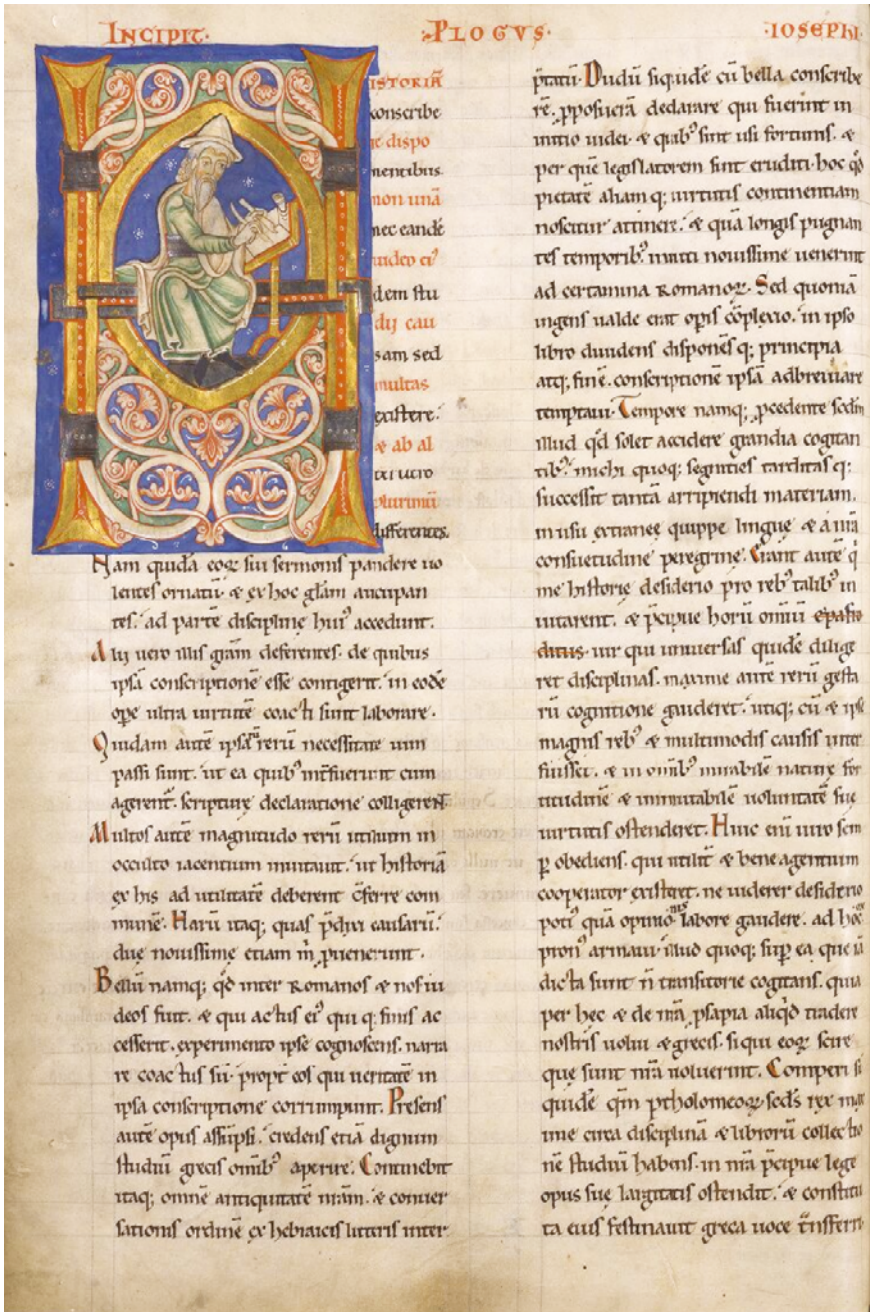 INCIPIT· PLOGVS· ·IOSEPHI·
ISTORIĀ
conscribe
re dispo
nentibus
non unā
nec eandē
uideo ei⁹
dem stu
dij cau
sam sed
multas
existere.
& ab al
teruero
plurimū
differentes.
Nam quidā eoꝝ sui sermonis pandere uo
lentes ornatū. & ex hoc glām aucupan
tes. ad partē discipline hui⁹ accedunt.
Alij uero illis grām deferentes. de quibus
ipsā conscriptionē esse contigerit. in eodē
ope ultra uirtutē coacti sunt laborare.
Quidam autē ipsaꝝ rerū necessitate uim
passi sunt. ut ea quib⁹ int̄fuerunt cum
agerent. scripturę declaratione colligerent
Multos autē magnitudo rerū utilium in
occulto iacentium inuitauit. ut historiā
ex his ad utilitatē deberent c̄ferre com
munē. Harū itaq; quas p̄dixi causarū.
duę nouissimę etiam m̄ ꝓuenerunt.
Bellū namq; qd̄ inter Romanos & nos iu
deos fuit. & qui actus ei⁹ qui q; finis ac
cesserit. experimento ipse cognoscens. narra
re coactus sū. propt̄ eos qui ueritatē in
ipsa conscriptione corrumpunt. Presens
autē opus assūpsi. credens etiā dignum
studiū grecis omīb⁹ aperire. Continebit
itaq; omnē antiquitatē nrām. & conuer
sationis ordinē ex hebraicis litteris inter
p̄tatū. Dudū siquidē cū bella conscribe
rē. ꝓposuerā declarare qui fuerint in
initio iudei. & quib⁹ sint usi fortunis. &
per quē legislatorem sint eruditi. hoc qd̄
pietatē aliam q; uirtutis continentiam
noscitur attinere. & quā longis pugnan
tes temporib⁹. inuiti nouissime uenerint
ad certamina Romanoꝝ. Sed quoniā
ingens ualde erat opis cōplexio. in ipso
libro diuidens disponēs q; principia
atq; finē. conscriptionē ipsā adbreuiare
temptaui. Tempore namq; ꝓcedente
illud qd̄ solet accidere grandia cogitan
tib⁹. michi quoq; segnities tarditas q;
successit tantā arripiendi materiam.
in usu extraneę quippe linguę & a nrā
consuetudine peregrine. Erant autē q̄
me historię desiderio pro reb⁹ talib⁹ in
uitarent. & p̄cipue horū omniū epafro
ditus. uir qui uniuersas quidē dilige
ret disciplinas. maxime autē rerū gesta
rū cognitione gauderet. utiq; cū & ipse
magnis reb⁹ & multimodis causis inter
fuisset. & in omīb⁹ mirabilē naturę for
titudinē & inmutabilē uoluntatē suę
uirtutis ostenderet. Huic enī uiro sem
ꝑ obediens. qui utiliū & bene agentium
cooperator existeret. ne uiderer desiderio
poti⁹ quā opinionis labore gaudere. ad hoc
pron⁹ armaui. illud quoq; suꝑ ea que iā
dicta sunt n̄ transitorie cogitans. quia
per hęc & de nrā ꝓsapia aliqd̄ tradere
nostris uolui & grecis. siqui eoꝝ scire
que sunt nrā uoluerint. Comperi si
quidē qm̄ ptholomeoꝝ. scd̄s rex max
ime circa disciplinā & librorū collectio
nē studiū habens. in nrā p̄cipue lege
opus suę largitatis ostendit. & constitu
ta eius festinauit greca uoce t̄nsferri